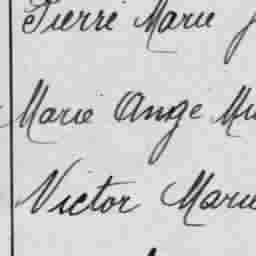 Pierre Marie
Marie Ange
Victor Marie